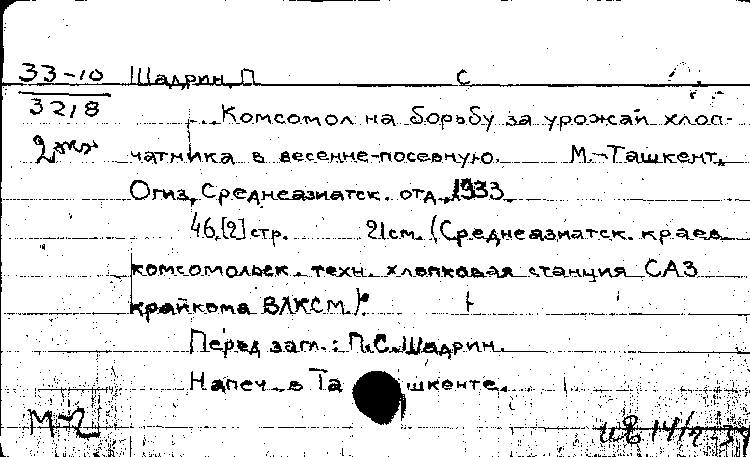 33-10 Шадрин, П С
3218
...Комсомол на борьбу за урожай хлоп-
2 экз чатника в весенне-посевную. М.-Ташкент,
Огиз, Среднеазиатск. отд., 1933.
46,[2] стр. 21 см. (Среднеазиатск. краев.
комсомольск. техн. хлопковая станция САЗ
крайкома ВЛКСМ).
Перед загл.: П.С. Шадрин.
Напеч. в Ташкенте.
М-2